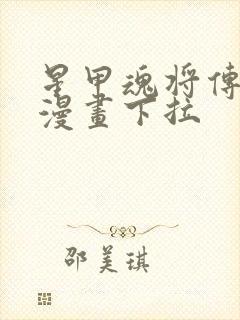 星甲魂将傳
漫畫下拉
邵美琪